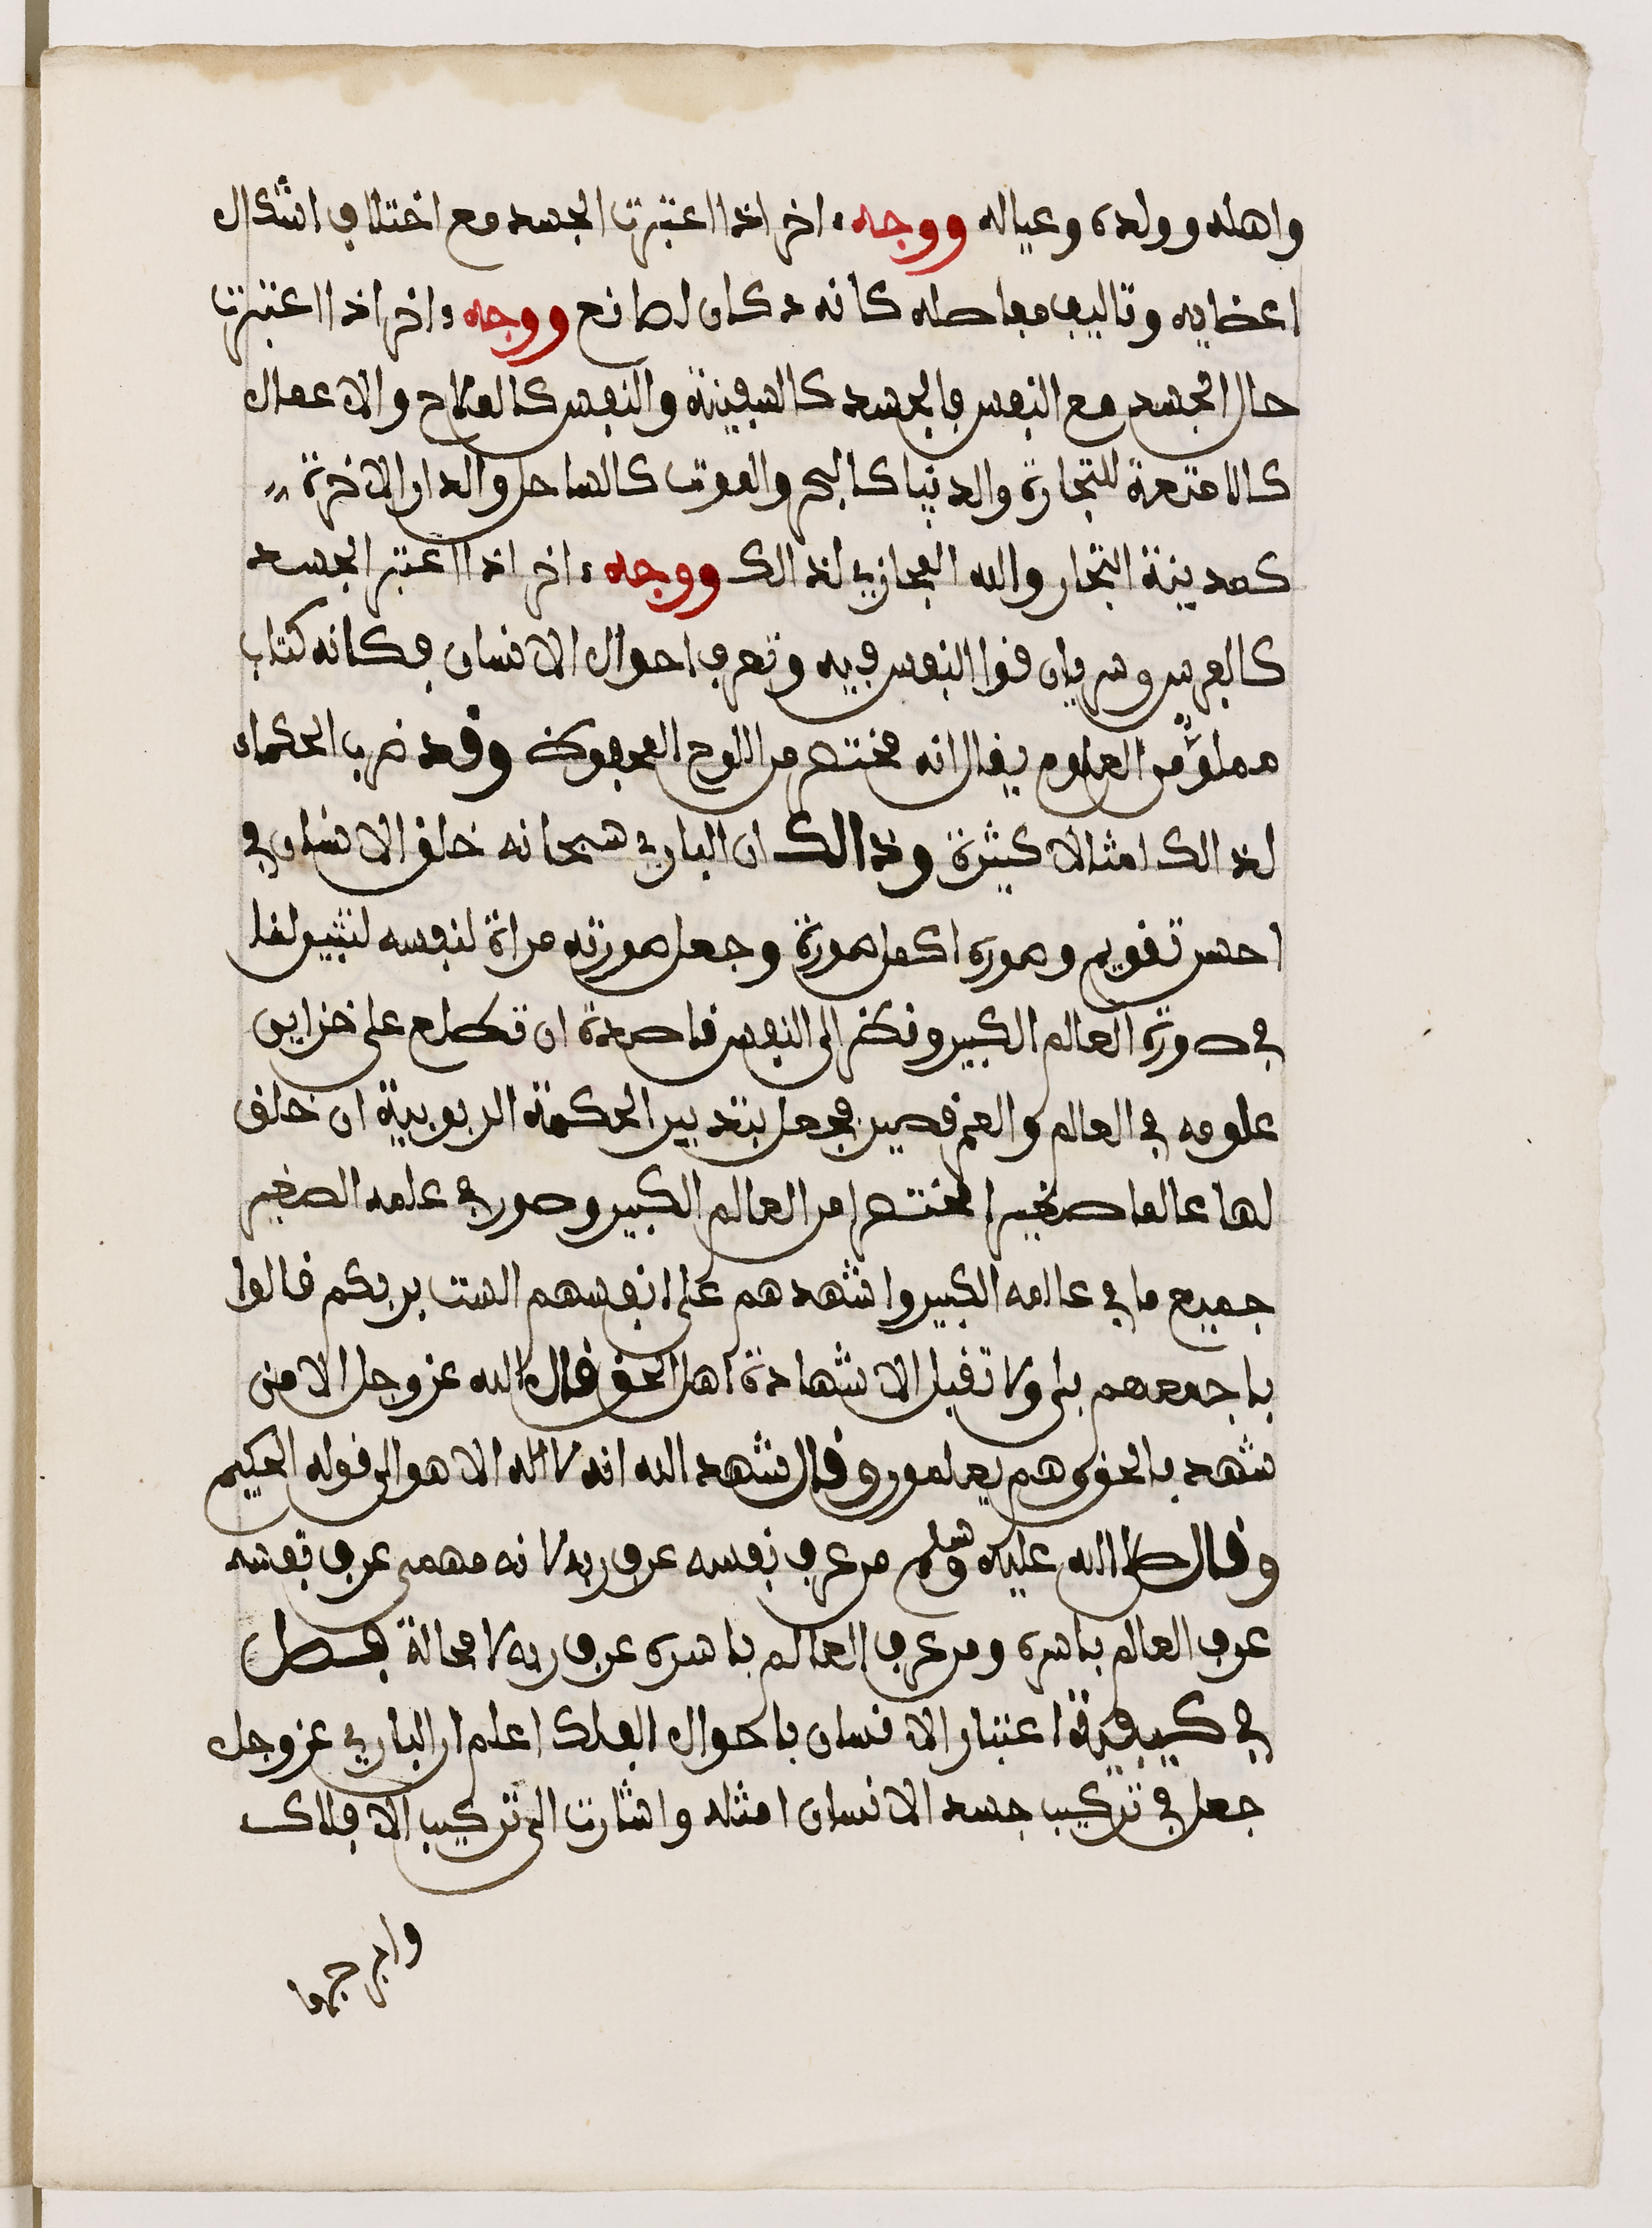 واهله وولده وعياله ووجه ءاخر اذا اعتبرت الجسد مع اختلاف اشكال
اعضايه وتاليف مفاصله كانه دكان لصانع ووجه ءاخر اذا اعتبرت
حال الجسد مع النفس فالجسد كالسفينة والنفس كالملاح والاعمال
كالامتعة للتجارة والدنيا كالبحر والموت كالساحل والدار الاخرة
كمدينة التجار والله المجازي لذالك ووجه ءاخر اذا اعتبر الجسد
كالعرس وسريان قوا النفس فيه وتعرف احوال الانسان فكانه كتاب
مملو من العلوم يقال انه مختصر من اللوح المحفوظ وقد ضرب الحكماء
لذالك امثالا كثيرة وذالك ان الباري سبحانه خلق الانسان في
احسن تقويم وصوره اكمل صورة وجعل صورته مراة لنفسه لتبين لها
في صورة العالم الكبير ونظر الى النفس قاصدة ان تطلع على خزاين
علومه في العالم والعمر قصير فجعل بتدبير الحكمة الربوبية ان خلق
لها عالما صغيرا مختصرا من العالم الكبير وصور في علمه الصغير
جميع ما في عالمه الكبير واشهدهم على انفسهم الست بربكم قالوا
باجمعهم بلى ولا تقبل الا شهادة اهل الحق قال الله عز وجل الا من
شهد بالحق وهم يعلمون وقال شهد الله انه لا اله الا هو الى قوله الحكيم
وقال صلى الله عليه وسلم من عرف نفسه عرف ربه لانه مهمى عرف نفسه
عرف العالم باسره ومن عرف العالم باسره عرف ربه لا محالة فصل
في كيفية اعتبار الانسان باحوال الفلك اعلم ان الباري عز وجل
جعل في تركيب جسد الانسان امثله واشارت الى تركيب الافلاك
وابرجها